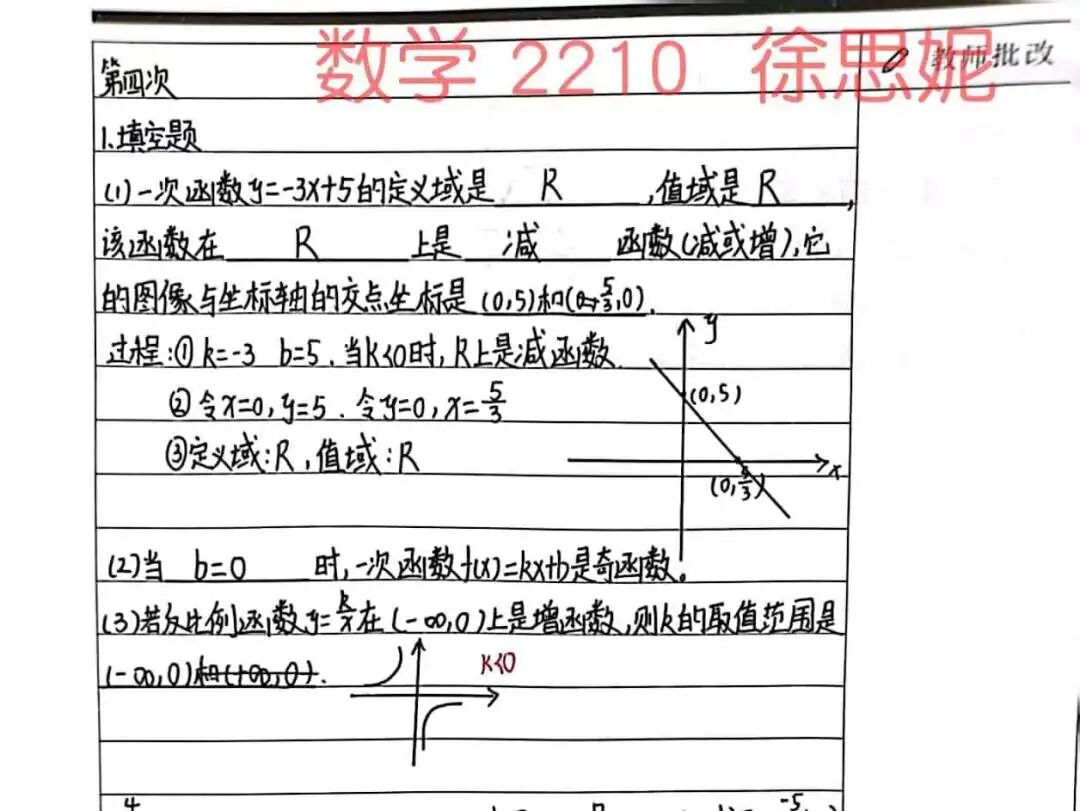 数学 2210 徐思妮
教师批改
第四次
1.填空题
(1)一次函数y=-3x+5的定义域是 R ,值域是 R ,
该函数在 R 上是 减 函数(减或增),它
的图像与坐标轴的交点坐标是(0,5)和(5/3,0).
过程:①k=-3 b=5.当k<0时,R上是减函数.
②令x=0,y=5.令y=0,x=5/3
③定义域:R,值域:R
y
(0,5)
x
(2)当 b=0 时,一次函数f(x)=kx+b是奇函数。
(3)若反比例函数y=k/x在(-∞,0)上是增函数,则k的取值范围是
(-∞,0)和(+∞,0).
k<0